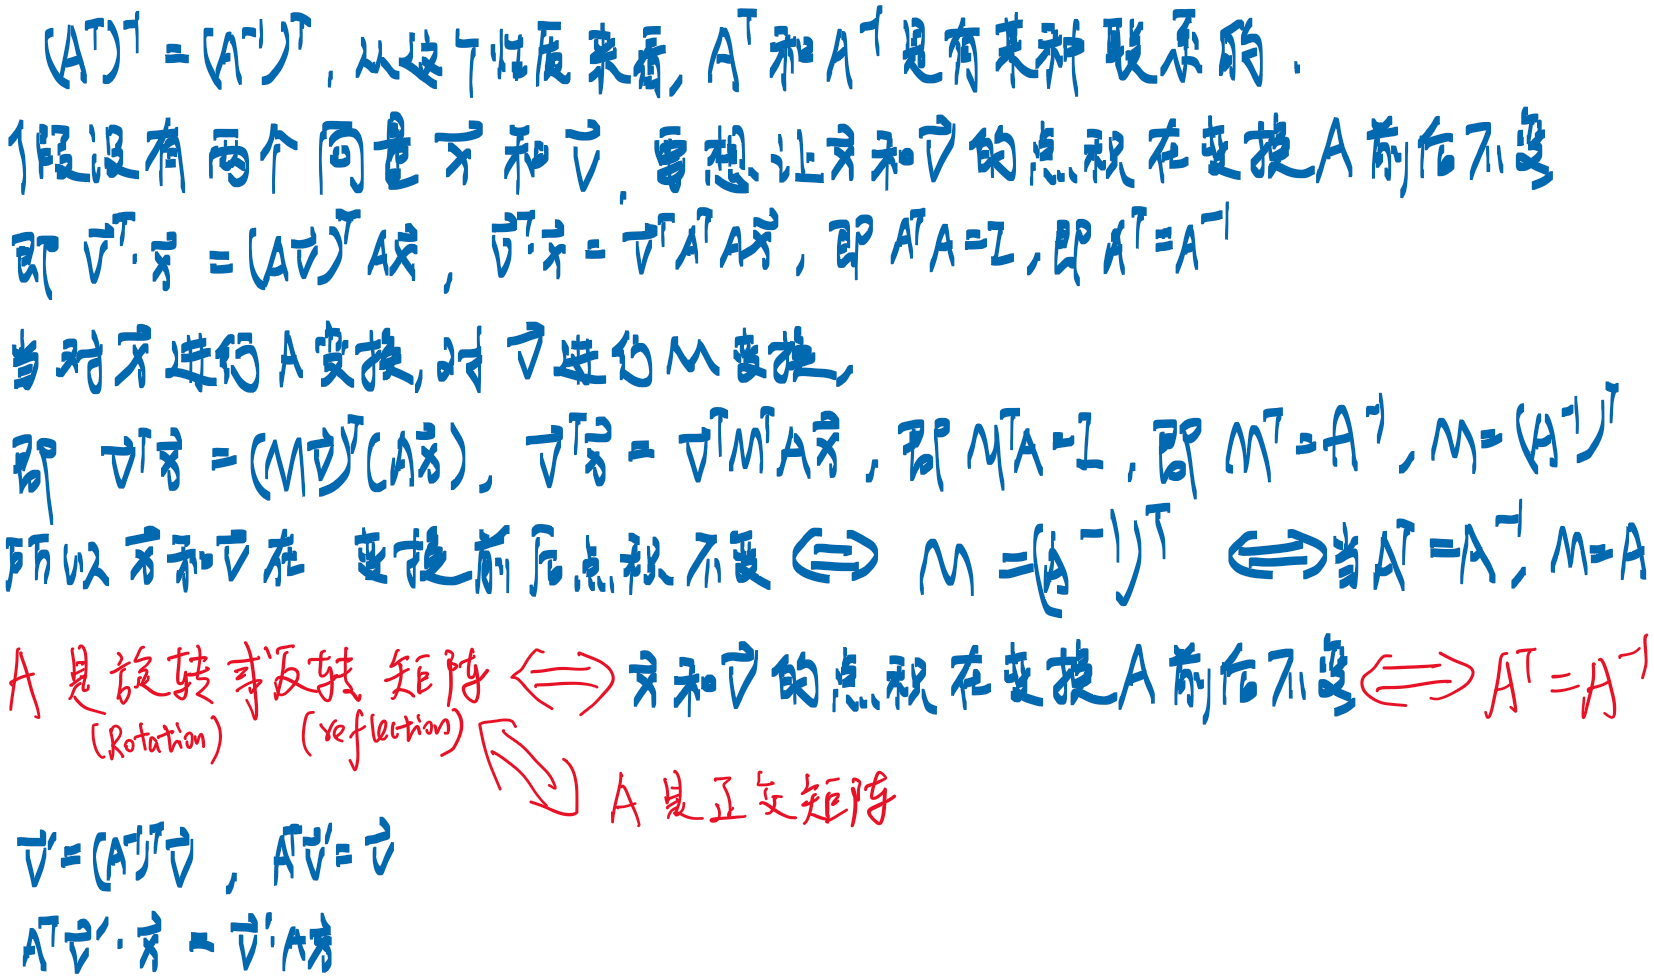 (Aᵀ)⁻¹ = (A⁻¹)ᵀ, 从这个性质来看, Aᵀ和A⁻¹是有某种联系的.
假设有两个向量 x⃗ 和 v⃗. 要想让x⃗和v⃗的点积在变换A前后不变
即 v⃗ᵀ·x⃗ = (Av⃗)ᵀAx⃗, v⃗ᵀ·x⃗ = v⃗ᵀAᵀAx⃗, 即 AᵀA=I, 即Aᵀ=A⁻¹
当对x⃗进行A变换, 对v⃗进行M变换,
即 v⃗ᵀx⃗ = (Mv⃗)ᵀ(Ax⃗), v⃗ᵀx⃗ = v⃗ᵀMᵀAx⃗, 即MᵀA=I, 即 Mᵀ=A⁻¹, M=(A⁻¹)ᵀ
所以x⃗和v⃗在 变换前后点积不变 ⟺ M=(A⁻¹)ᵀ ⟺ 当Aᵀ=A⁻¹, M=A
A是旋转或反转矩阵 ⟺ x⃗和v⃗的点积在变换A前后不变 ⟺ Aᵀ=A⁻¹
(Rotation) (reflection)
⟺ A是正交矩阵
v⃗′=(A⁻¹)ᵀv⃗, Aᵀv⃗′=v⃗
Aᵀv⃗′·x⃗ = v⃗′·Ax⃗